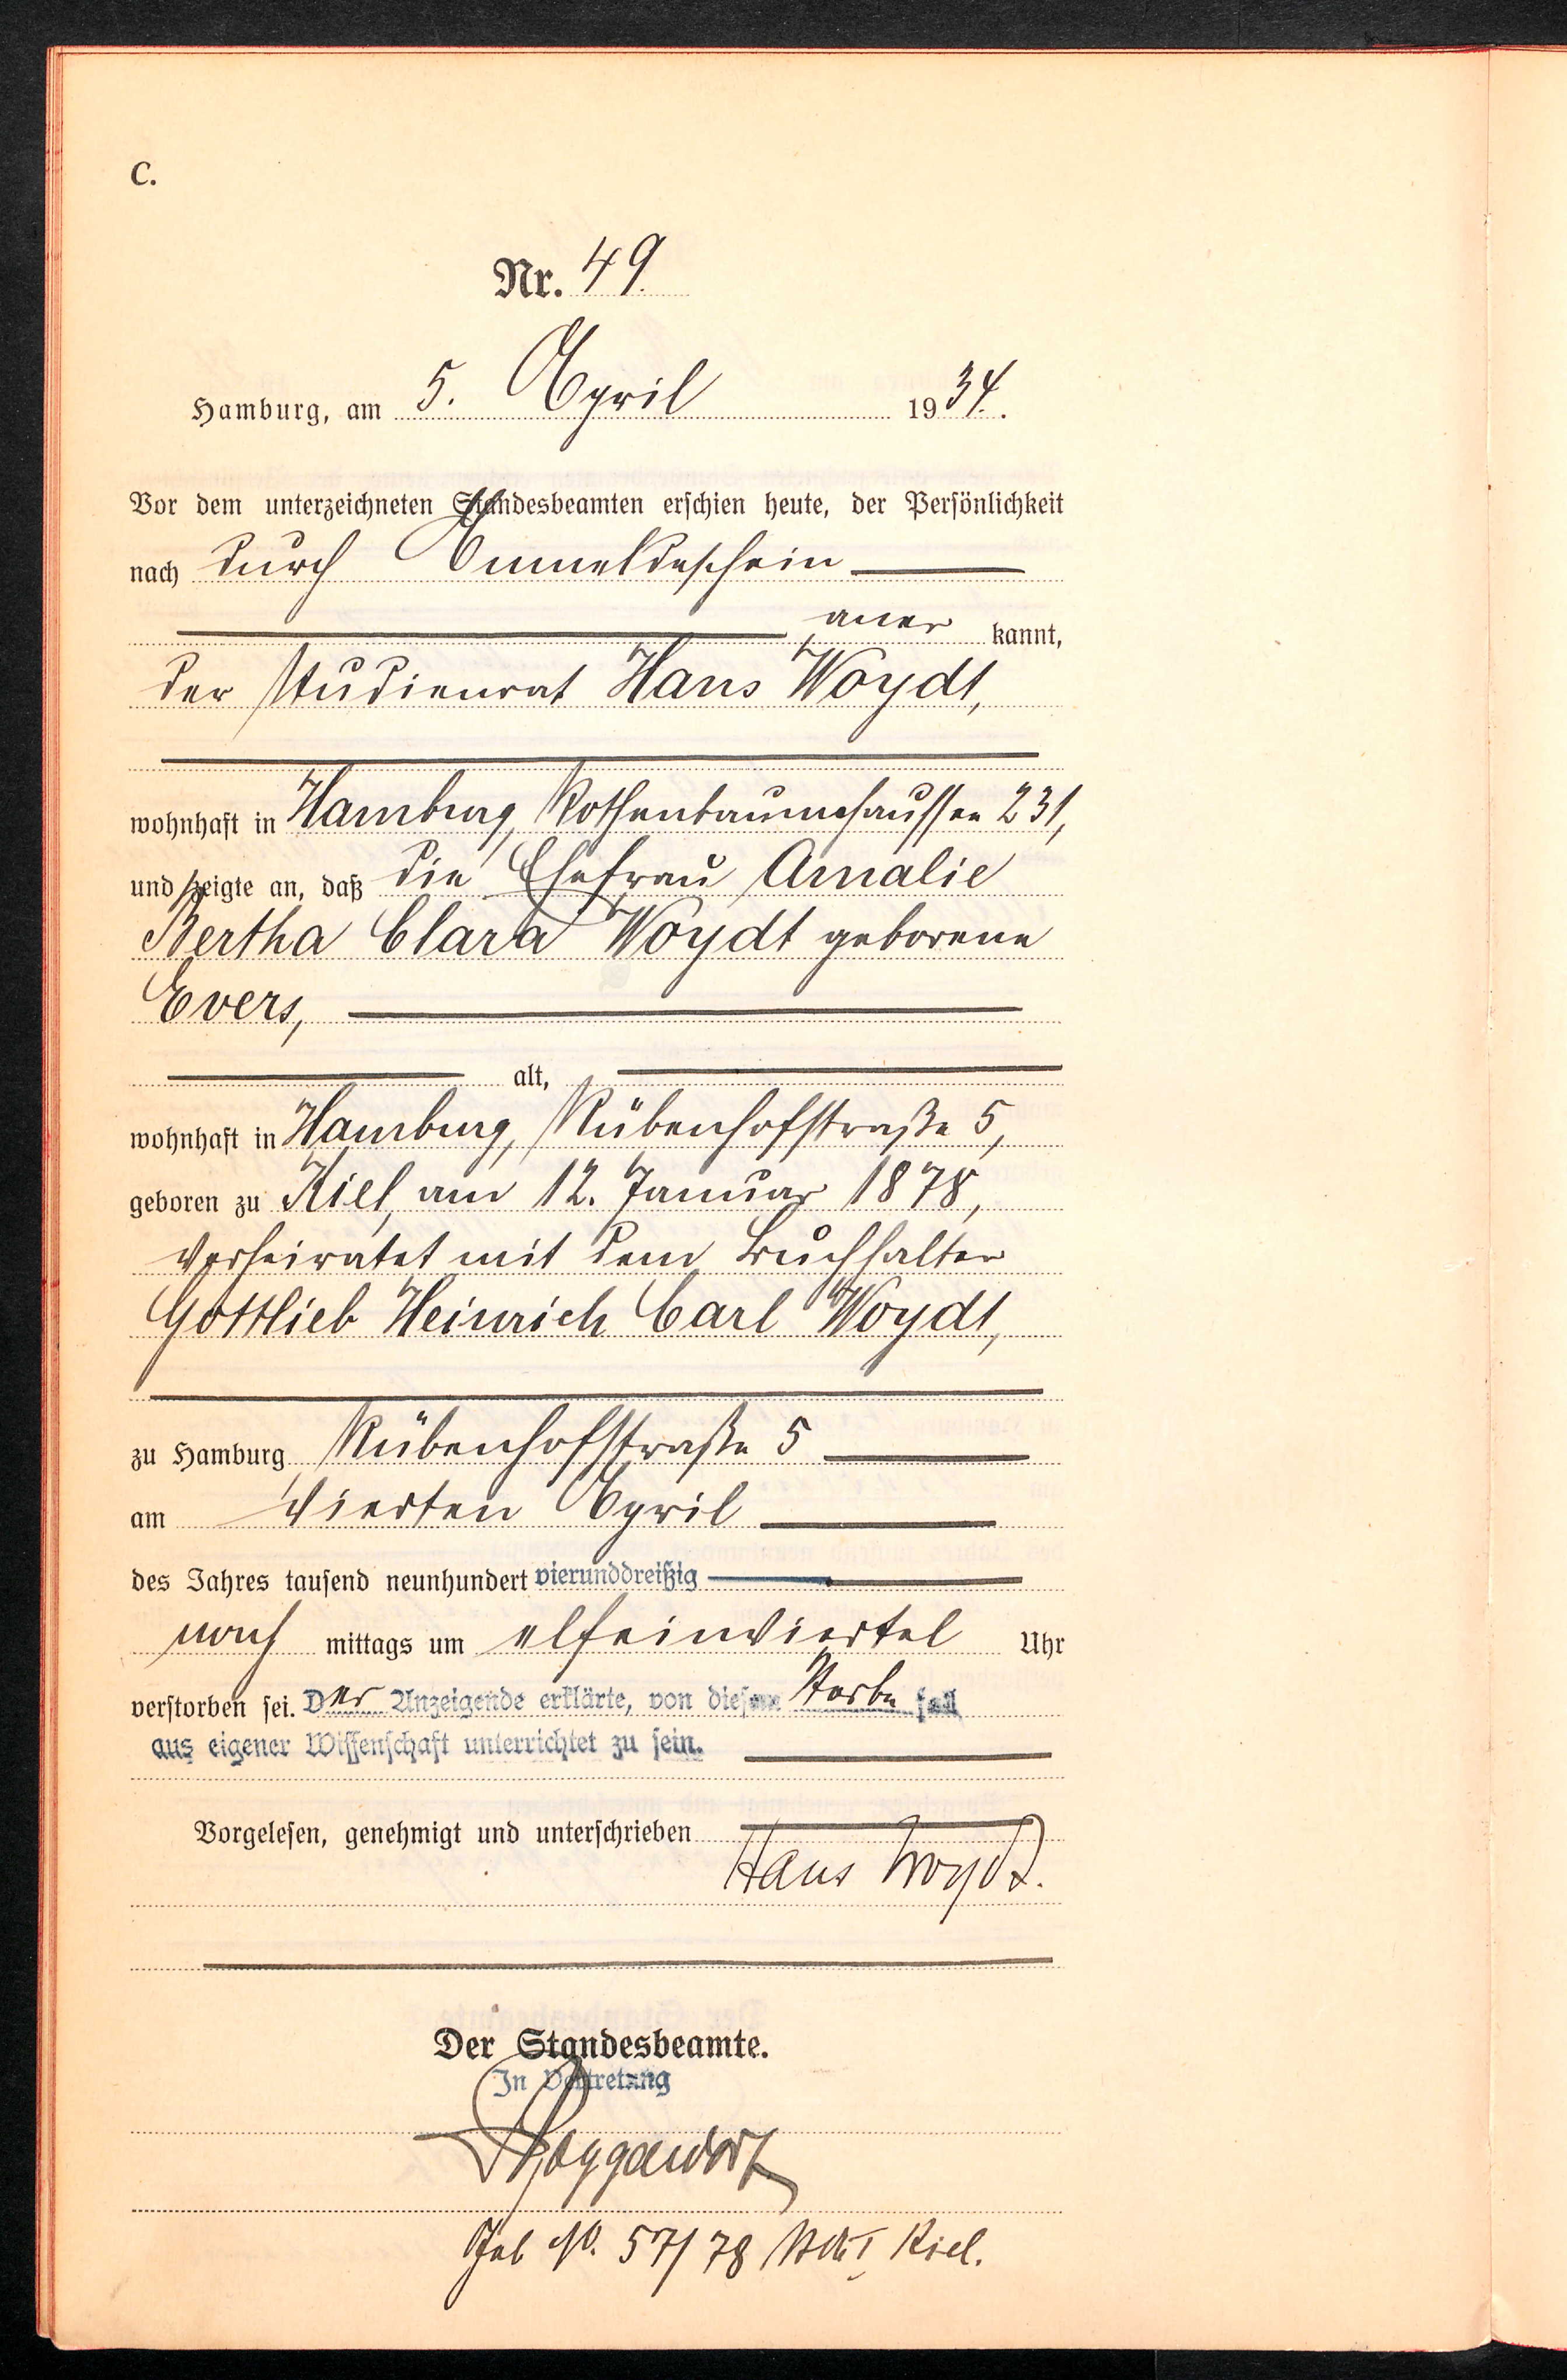 C.
Nr. 49.
Hamburg, am 5. April 1934.
Vor dem unterzeichneten Standesbeamten erschien heute, der Persönlichkeit
nach durch Anmeldeschein
anerkannt,
der Studienrat Hans Woydt,
wohnhaft in Hamburg, Rothenbaumchaussee 231,
und zeigte an, daß die Ehefrau Amalie
Bertha Clara Woydt geborene
Evers,
alt,
wohnhaft in Hamburg, Rübenhofstraße 5,
geboren zu Kiel, am 12. Januar 1878,
verheiratet mit dem Buchhalter
Gottlieb Heinrich Carl Woydt,
zu Hamburg Rübenhofstraße 5
am vierten April
des Jahres tausend neunhundert vierunddreißig
nach mittags um elfeinviertel Uhr
verstorben sei. Der Anzeigende erklärte, von diesem Sterbefall
aus eigener Wissenschaft unterrichtet zu sein.
Vorgelesen, genehmigt und unterschrieben
Hans Woydt.
Der Standesbeamte.
In Vertretung
Geb No. 57/78 Kiel.